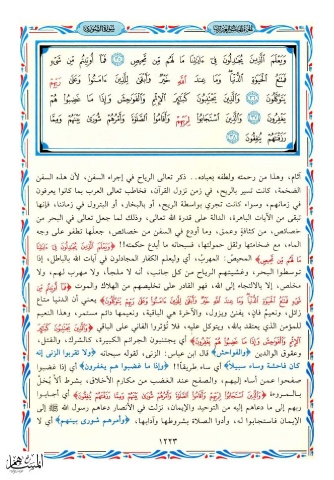 سورة الشورى
وَيَعْلَمَ الَّذِينَ يُجَادِلُونَ فِي ءَايَاتِنَا مَا لَهُم مِّن مَّحِيصٍ ﴿٣٥﴾ فَمَا أُوتِيتُم مِّن شَيْءٍ
فَمَتَاعُ الْحَيَاةِ الدُّنْيَا وَمَا عِندَ اللَّهِ خَيْرٌ وَأَبْقَى لِلَّذِينَ ءَامَنُوا وَعَلَى رَبِّهِمْ
يَتَوَكَّلُونَ ﴿٣٦﴾ وَالَّذِينَ يَجْتَنِبُونَ كَبَائِرَ الْإِثْمِ وَالْفَوَاحِشَ وَإِذَا مَا غَضِبُوا هُمْ
يَغْفِرُونَ ﴿٣٧﴾ وَالَّذِينَ اسْتَجَابُوا لِرَبِّهِمْ وَأَقَامُوا الصَّلَاةَ وَأَمْرُهُمْ شُورَى بَيْنَهُمْ وَمِمَّا
رَزَقْنَاهُمْ يُنفِقُونَ ﴿٣٨﴾
آثام، وهذا من رحمته ولطفه بعباده.. ذكر تعالى الرياح في إجراء السفن، لأن هذه السفن
الضخمة، كانت تسير بالريح، في زمن نزول القرآن، فخاطب تعالى العرب بما كانوا يعرفون
في زمانهم، وسواء كانت تجري بواسطة الريح، أو بالبخار، أو البترول في زماننا، فإنها
تبقى من الآيات الباهرة، الدالة على قدرة الله تعالى، وذلك لما جعل تعالى في البحر من
خصائص، من كثافة وعمق، وما أودع في السفن من خصائص، جعلها تطفو على وجه
الماء، مع ضخامتها وثقل حمولتها، فسبحانه ما أبدع حكمته!! ﴿وَيَعْلَمَ الَّذِينَ يُجَادِلُونَ فِي ءَايَاتِنَا
مَا لَهُم مِّن مَّحِيصٍ﴾ المحيص: المهرب، أي وليعلم الكفار المجادلون في آيات الله بالباطل، إذا
توسطوا البحر، وغشيتهم الرياح من كل جانب، أنه لا ملجأ، ولا مهرب لهم، ولا
مخلص، إلا بالالتجاء إلى الله، فهو القادر على تخليصهم من الهلاك والموت ﴿فَمَا أُوتِيتُم مِّن شَيْءٍ
فَمَتَاعُ الْحَيَاةِ الدُّنْيَا وَمَا عِندَ اللَّهِ خَيْرٌ وَأَبْقَى لِلَّذِينَ ءَامَنُوا وَعَلَى رَبِّهِمْ يَتَوَكَّلُونَ﴾ يعني أن الدنيا متاع
زائل، ونعيم فانٍ، يفنى ويزول، والآخرة هي الباقية، ونعيمها دائم مستمر، وهذا النعيم
للمؤمن الذي يعتقد بالله، ويتوكل عليه، فلا تؤثروا الفاني على الباقي ﴿وَالَّذِينَ يَجْتَنِبُونَ كَبَائِرَ
الْإِثْمِ وَالْفَوَاحِشَ وَإِذَا مَا غَضِبُوا هُمْ يَغْفِرُونَ﴾ أي يجتنبون الجرائم الكبيرة، كالشرك، والقتل،
وعقوق الوالدين ﴿والفواحش﴾ قال ابن عباس: الزنى، لقوله سبحانه ﴿ولا تقربوا الزنى إنه
كان فاحشة وساء سبيلاً﴾ أي ساء طريقاً!! ﴿وإذا ما غضبوا هم يغفرون﴾ أي إذا غضبوا
صفحوا عمن أساء إليهم، والصفح عند الغضب من مكارم الأخلاق، بشرط ألا يُخلّ
بالمروءة ﴿وَالَّذِينَ اسْتَجَابُوا لِرَبِّهِمْ وَأَقَامُوا الصَّلَاةَ وَأَمْرُهُمْ شُورَى بَيْنَهُمْ وَمِمَّا رَزَقْنَاهُمْ يُنفِقُونَ﴾ أي أجابوا
ربهم إلى ما دعاهم إليه من التوحيد والإيمان، نزلت في الأنصار دعاهم رسول الله ﷺ إلى
الإيمان فاستجابوا له، وأدوا الصلاة بشروطها وآدابها، ﴿وأمرهم شورى بينهم﴾ أي لا
١٢٢٣